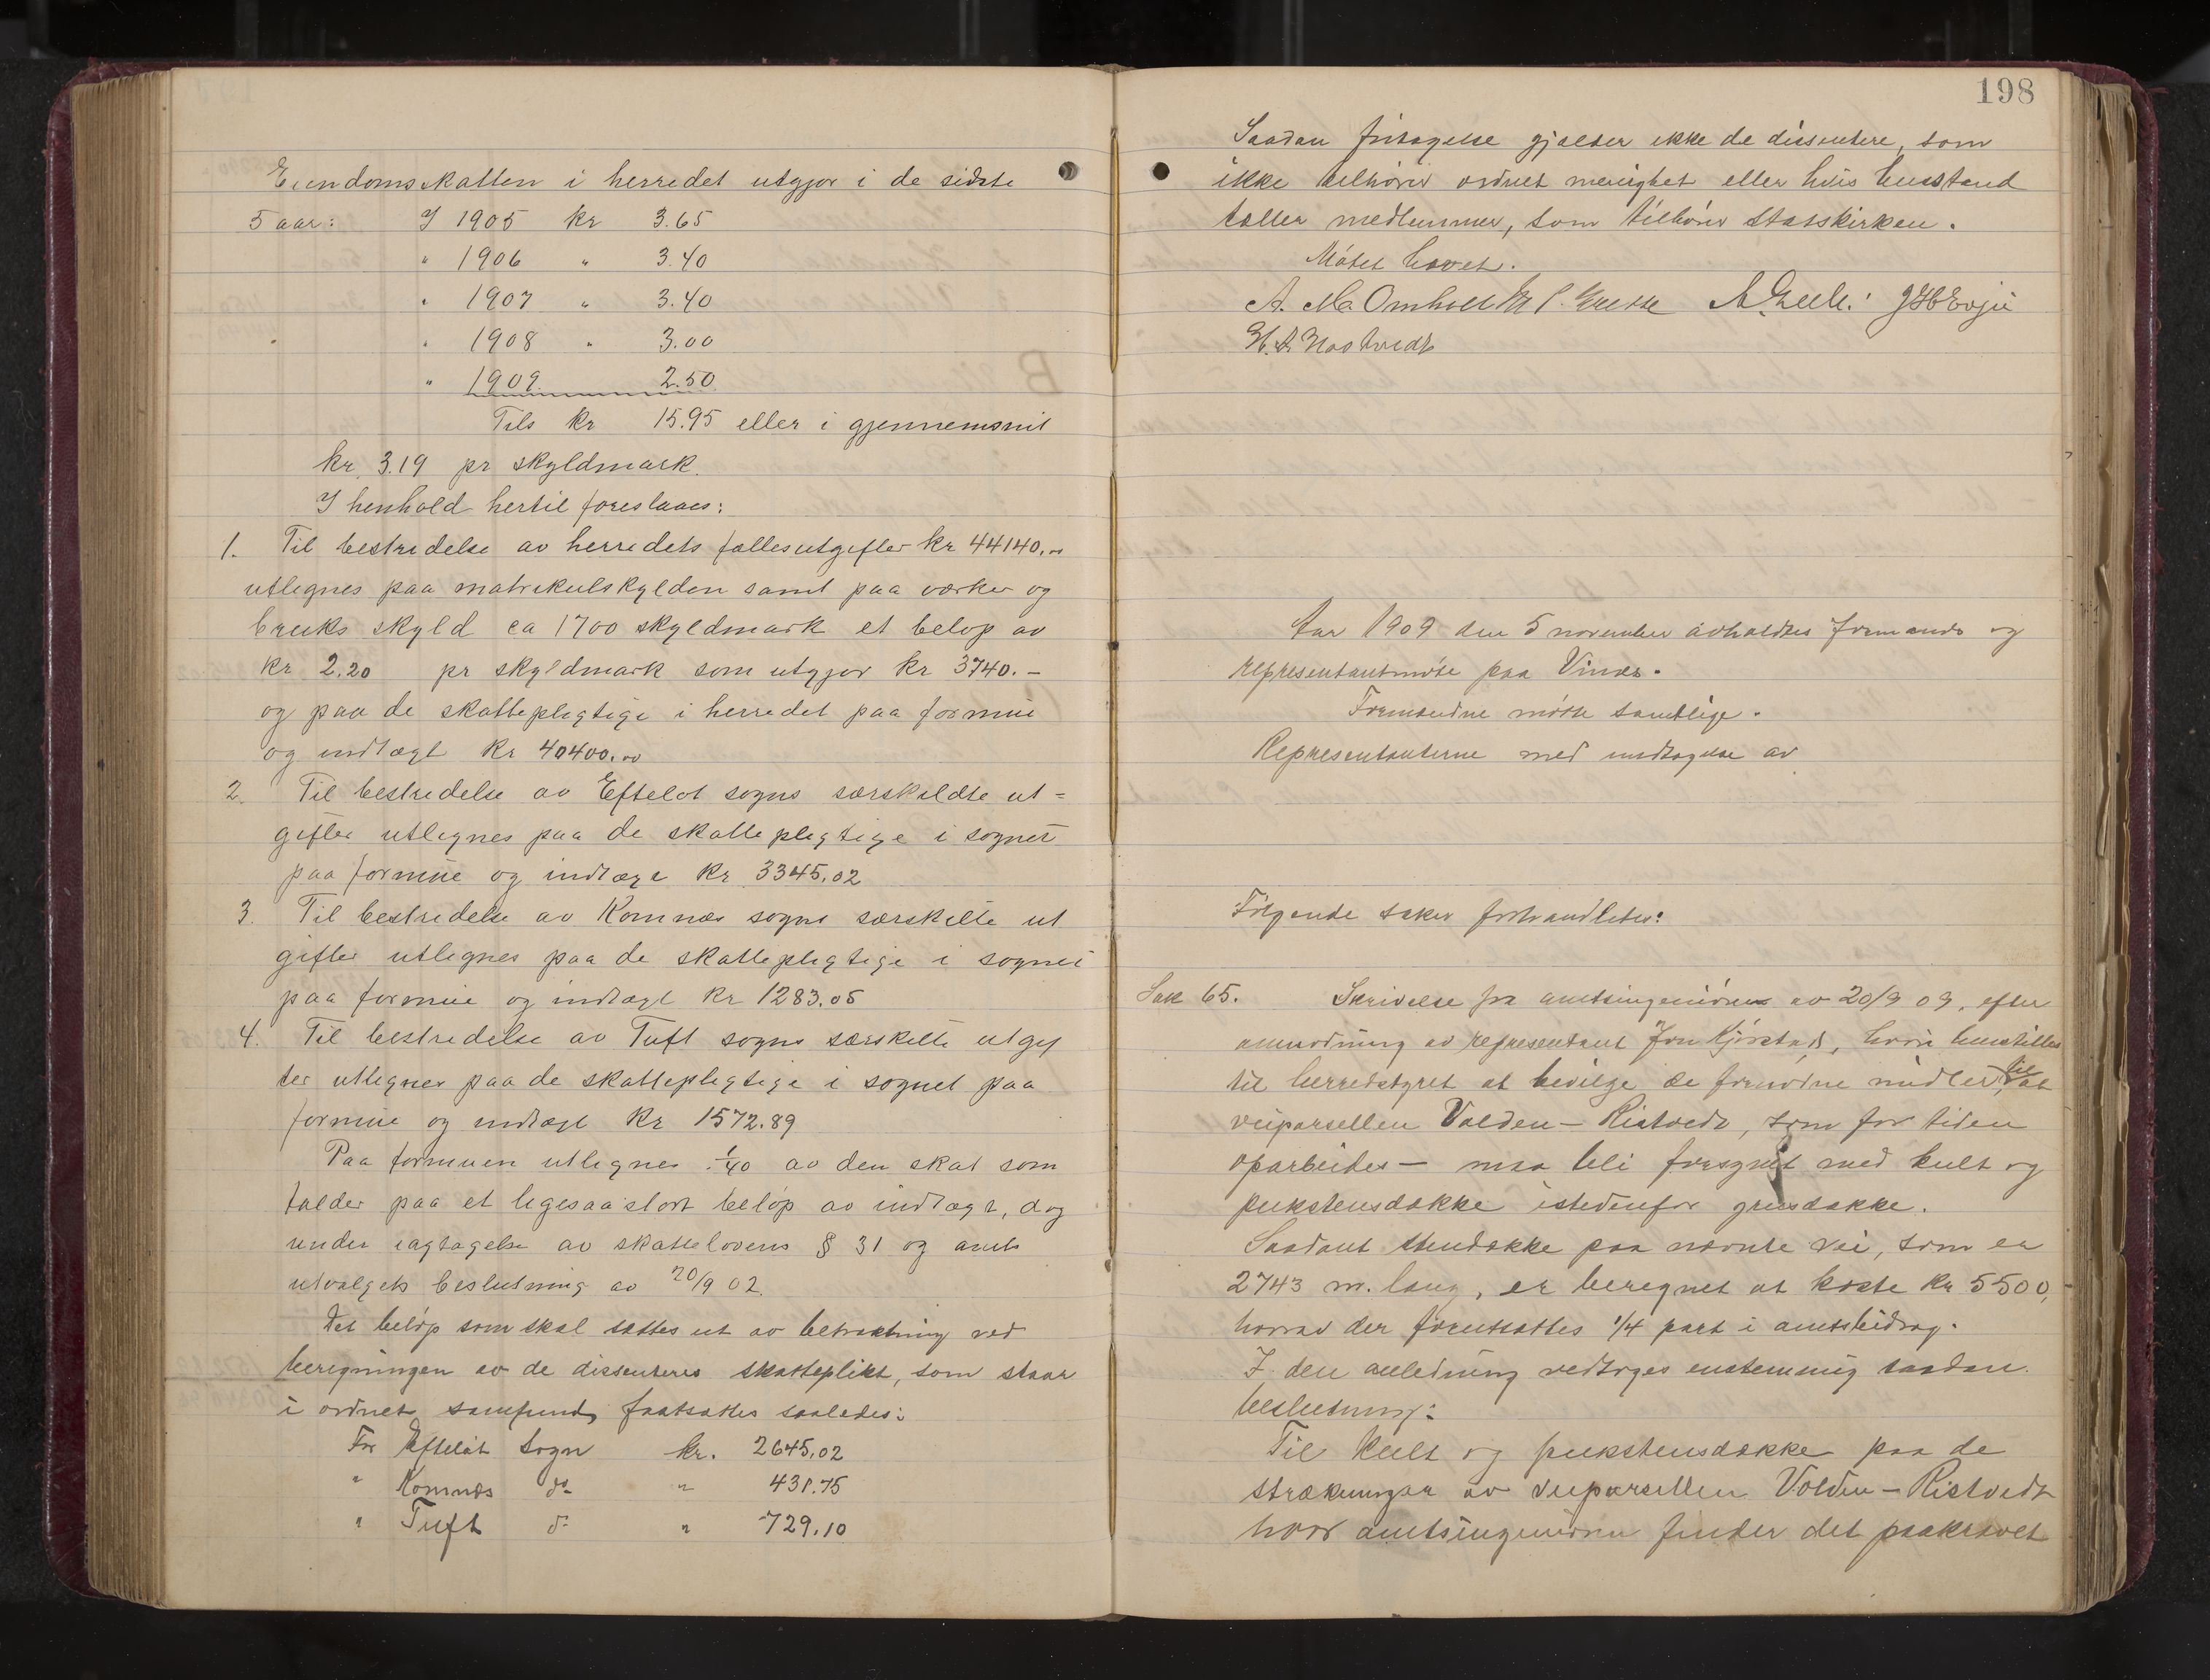 Eiendomsskatten i herredet utgjør i de sidste
5 aar: I 1905 kr 3.65
" 1906 " 3.40
" 1907 " 3.40
" 1908 " 3.00
" 1909 2.50
Tils kr 15.95 eller i gjennemsnit
kr 3.19 pr skyldmark.
I henhold hertil foreslaaes:
1. Til bestridelse av herredets fællesutgifter kr 44140.00
utlignes paa matrikulskylden samt paa værker og
bruks skyld ca 1700 skyldmark et beløp av
kr 2.20 pr skyldmark som utgjør kr 3740.-
og paa de skattepligtige i herredet paa formue
og indtægt kr 40400.00
2. Til bestridelse av Efteløt sogns særskildte ut=
gifter utlignes paa de skattepligtige i sognet
paa formue og indtægt kr 3345.02
3. Til bestridelse av Komnæs sogns særskilte ut
gifter utlignes paa de skattepligtige i sognet
paa formue og indtægt kr 1283.05
4. Til bestridelse av Tuft sogns særskilte utgif
ter utlignes paa de skattepligtige i sognet paa
formue og indtægt kr 1572.89
Paa formuen utlignes 1/40 av den skat som
falder paa et ligesaa stort beløp av indtægt, dog
under iagtagelse av skattelovens § 31 og amts
utvalgets beslutning av 20/9 02.
Det beløp som skal sættes ut av betraktning ved
beregningen av de dissenteres skatteplikt, som staar
i ordnet samfund, fastsattes saaledes:
For Efteløt Sogn kr. 2645.02
" Komnæs do " 431.75
" Tuft do " 729.10
198
Saadan fritagelse gjælder ikke de dissentere, som
ikke tilhører ordnet menighet eller hvis husstand
tæller medlemmer, som tilhører statskirken.
Møtet hævet.
A. Ma. Omholt
Aar 1909 den 5 november avholdtes formands og
representantmøte paa Vinæs.
Formændne møtte samtlige.
Representanterne med undtagelse av
Følgende saker forhandledes:
Sak 65. Skrivelse fra amtsingeniøren av 20/9 09, efter
anmodning av representant Jon Kjørstad, hvori henstilles
til herredstyret at bevilge de fornødne midler til at
veiparsellen Volden – Ristvedt, som for tiden
oparbeides – maa bli forsynet med kult og
pukstensdække istedenfor grusdække.
Saadant stendække paa nævnte vei, som er
2743 m. lang, er beregnet at koste kr 5500,-
hvorav der forutsættes 1/4 part i amtsbidrag.
I den anledning vedtoges enstemmig saadan
beslutning:
Til kult og pukstensdække paa de
strækninger av veiparsellen Volden – Ristvedt
hvor amtsingeniøren finder det paakrævet